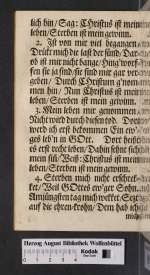 lich bin / Sag: Christus ist mein
leben / Sterben ist mein gewinn.
2. Ist von mir viel begangen
Drückt mich die last der sünd: Dar-
ob ist mir nicht bange / Hinworf-
fen sie ja sind / sie sind mir gar ver-
geben / Durch Christum g'nom-
men hin / Nun Christus ist mein
leben / Sterben ist mein gewinn.
3. Mein leben mit gewonnen
Nicht wird durch diesen tod. Dort
werd ich erst bekommen Ein ew'-
ges leb'n in GOtt. Dort
es erst rechte leben / Dahin sehnt sich
mein sin / Weiß: Christus ist mein
leben / Sterben ist mein gewinn.
4. Sterben mich nicht erschrek-
ket / Weil GOttes ew'ger Sohn
Am jüngsten tag mich wekket
auf die ehren-krohn / Dem hab ich
Herzog August Bibliothek Wolfenbüttel